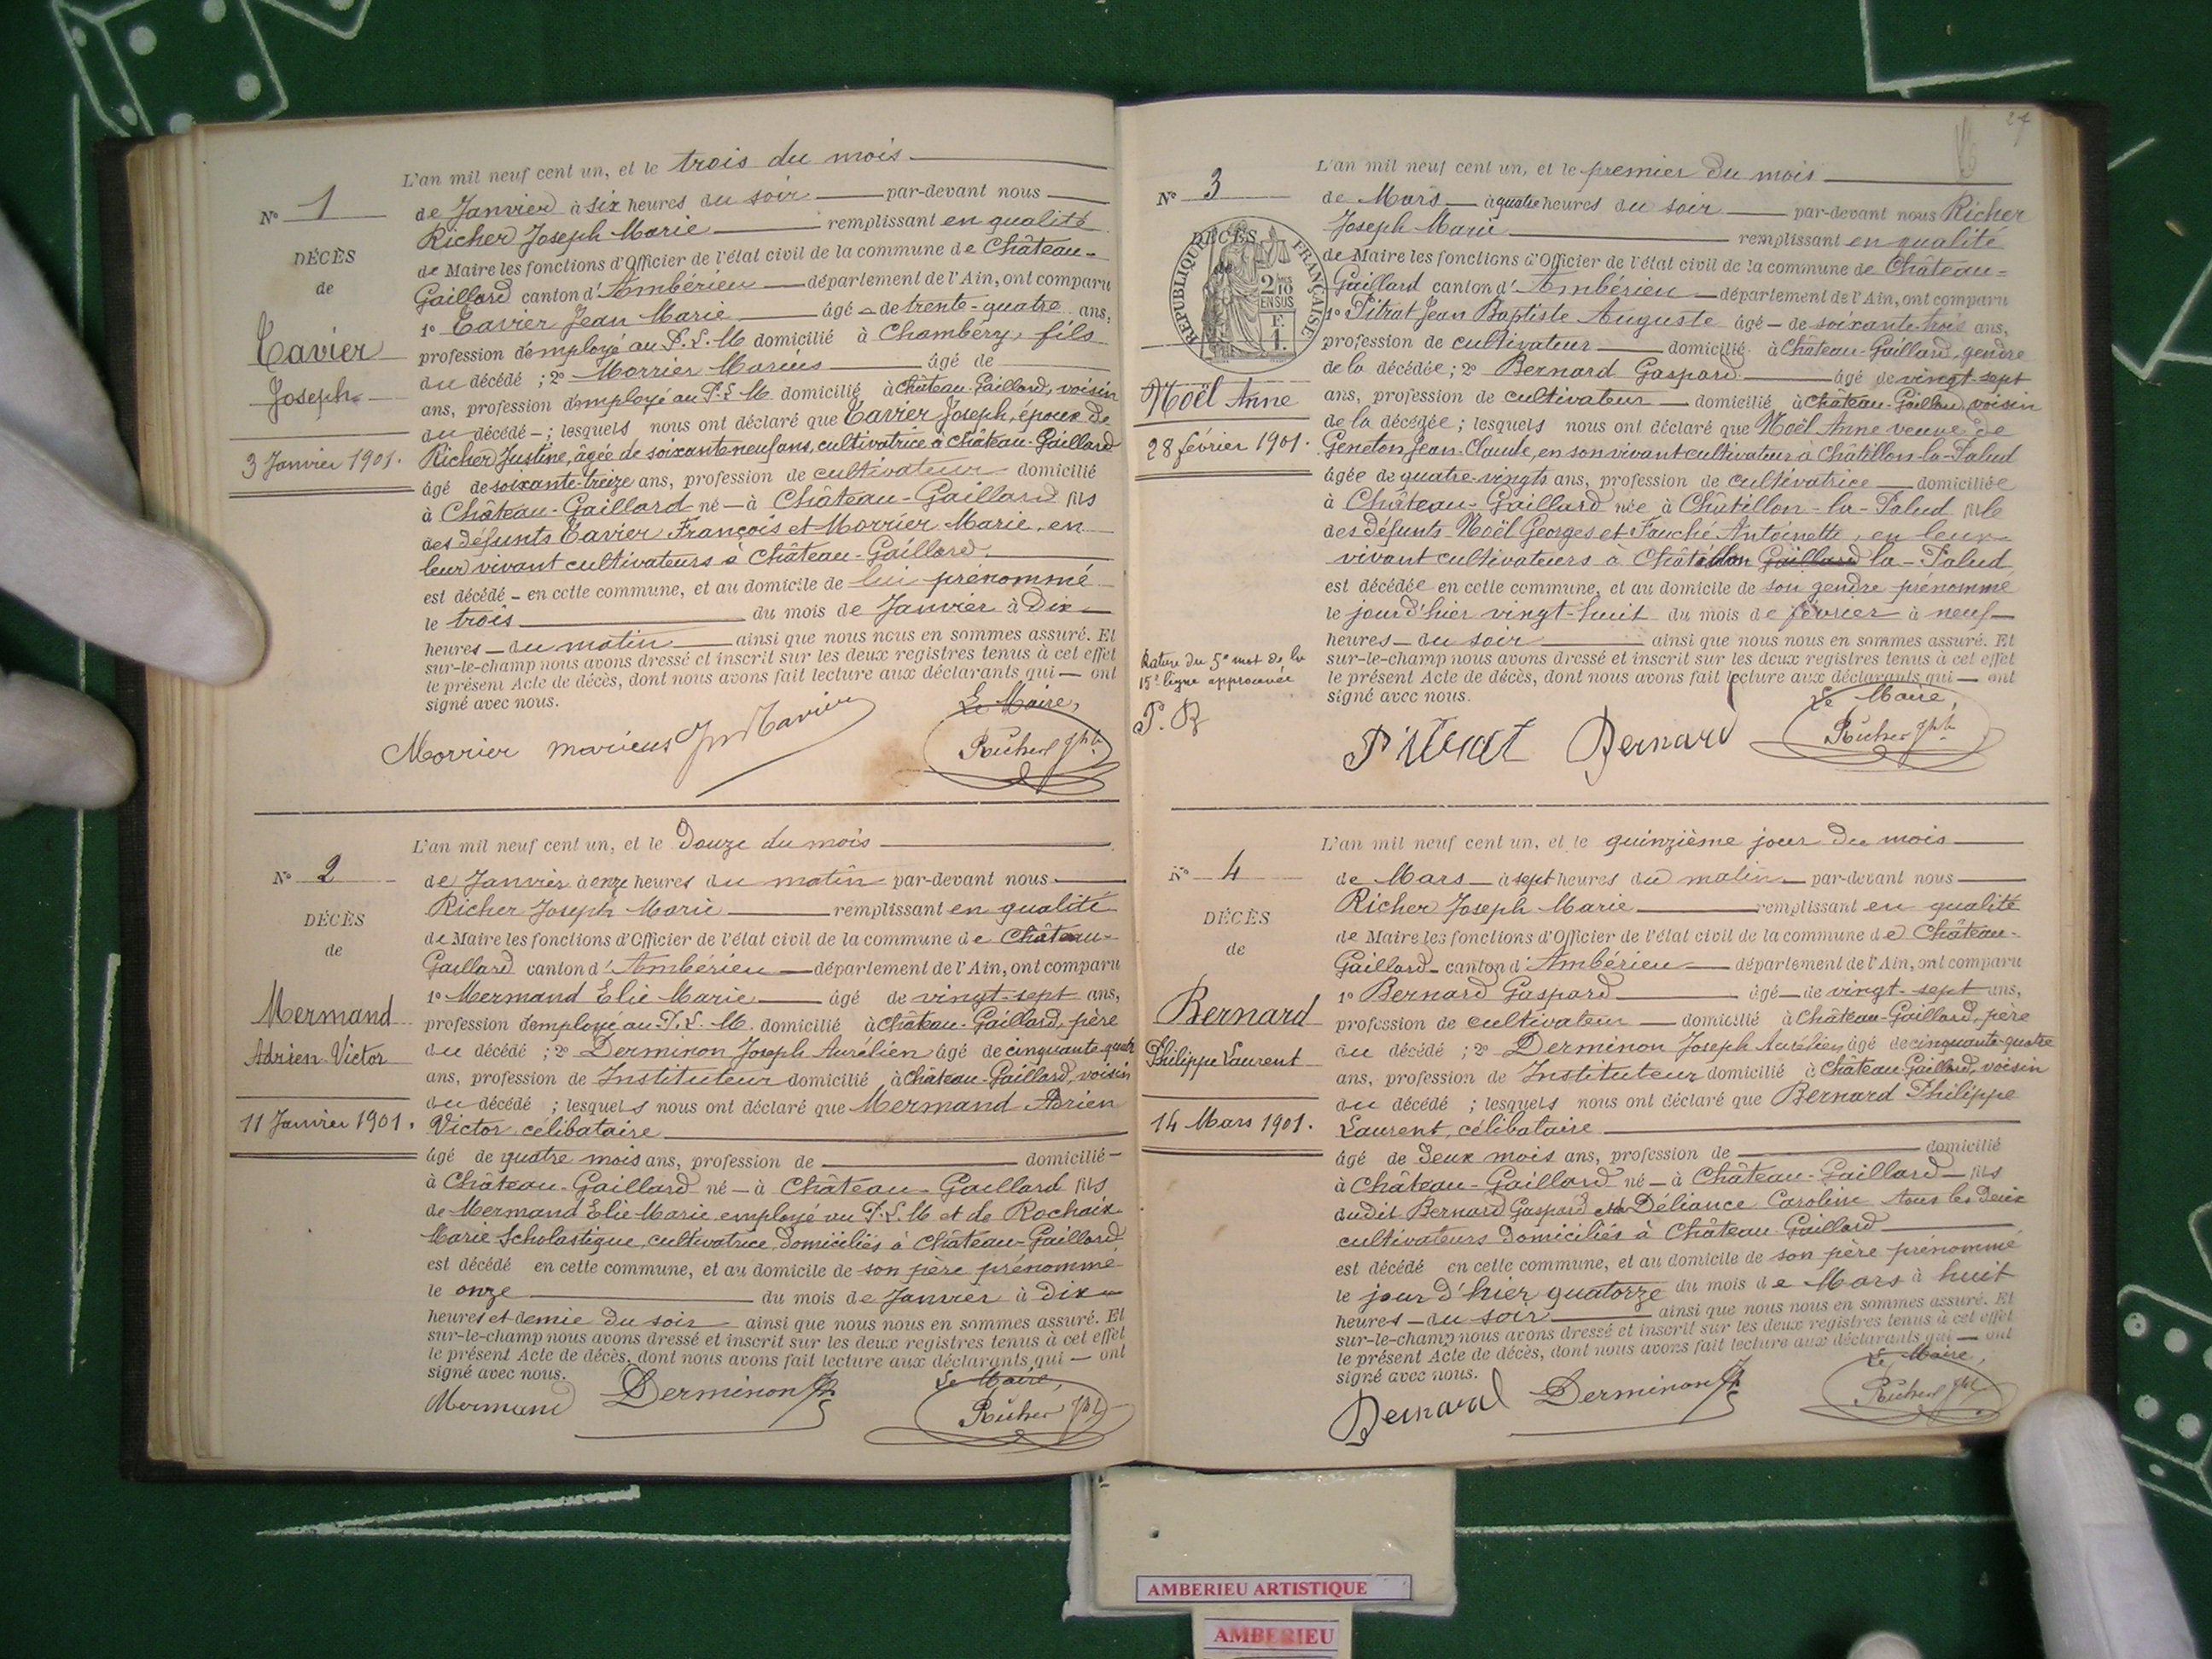 L'an mil neuf cent un, et le trois du mois
Nº 1
de Janvier à six heures du soir par-devant nous
Richer Joseph Marie remplissant en qualité
DÉCÈS
de Maire les fonctions d'Officier de l'état civil de la commune de Château-
de
Gaillard canton d'Ambérieu département de l'Ain, ont comparu
1º Tavier Jean Marie âgé de trente-quatre ans,
Tavier
profession d'employé au P.L.M domicilié à Chambéry, fils
Joseph
du décédé ; 2º Morrier Marius âgé de
ans, profession d'employé au P.L.M. domicilié à Château-Gaillard, voisin
du décédé ; lesquels nous ont déclaré que Tavier Joseph, époux de
3 Janvier 1901.
Richer Justine, âgée de soixante neuf ans, cultivatrice à Château-Gaillard
âgé de soixante-treize ans, profession de cultivateur domicilié
à Château-Gaillard né à Château-Gaillard fils
des défunts Tavier François et Morrier Marie, en
leur vivant cultivateurs à Château-Gaillard
est décédé en cette commune, et au domicile de lui prénommé
le trois du mois de Janvier à Dix
heures du matin ainsi que nous nous en sommes assuré. Et
sur-le-champ nous avons dressé et inscrit sur les deux registres tenus à cet effet
le présent Acte de décès, dont nous avons fait lecture aux déclarants qui ont
signé avec nous.
Le Maire,
Morrier marieus Jn Tavier Richer Jph
L'an mil neuf cent un, et le Douze du mois
Nº 2
de Janvier à onze heures du matin par-devant nous
Richer Joseph Marie remplissant en qualité
DÉCÈS
de Maire les fonctions d'Officier de l'état civil de la commune de Château-
de
Gaillard canton d'Ambérieu département de l'Ain, ont comparu
1º Mermand Elie Marie âgé de vingt-sept ans,
Mermand
profession d'employé au P.L.M. domicilié à Château-Gaillard, père
Adrien Victor
du décédé ; 2º Derminon Joseph Aurélien âgé de cinquante-quatre
ans, profession de Instituteur domicilié à Château-Gaillard, voisin
du décédé ; lesquels nous ont déclaré que Mermand Adrien
11 Janvier 1901.
Victor célibataire
âgé de quatre mois ans, profession de domicilié
à Château-Gaillard né à Château-Gaillard fils
de Mermand Elie Marie, employé au P.L.M et de Rochaix
Marie Scholastique, cultivatrice, domiciliés à Château-Gaillard
est décédé en cette commune, et au domicile de son père prénommé
le onze du mois de Janvier à Dix
heures et demie du soir ainsi que nous nous en sommes assuré. Et
sur-le-champ nous avons dressé et inscrit sur les deux registres tenus à cet effet
le présent Acte de décès, dont nous avons fait lecture aux déclarants qui ont
signé avec nous.
Le Maire,
Mermand Derminon Richer Jph
27
L'an mil neuf cent un, et le premier du mois
Nº 3
de Mars à quatre heures du soir par-devant nous Richer
Joseph Marie remplissant en qualité
DÉCÈS
RÉPUBLIQUE FRANÇAISE
2/10 EN SUS
F. 1.
de Maire les fonctions d'Officier de l'état civil de la commune de Château-
Gaillard canton d'Ambérieu département de l'Ain, ont comparu
1º Pitrat Jean Baptiste Auguste âgé de soixante-trois ans,
profession de cultivateur domicilié à Château-Gaillard, gendre
de la décédée ; 2º Bernard Gaspard âgé de vingt-sept
Noël Anne
ans, profession de cultivateur domicilié à Château-Gaillard voisin
de la décédée ; lesquels nous ont déclaré que Noël Anne veuve de
28 février 1901.
Geneton Jean-Claude, en son vivant cultivateur à Châtillon-la-Palud
âgée de quatre-vingts ans, profession de cultivatrice domiciliée
à Château-Gaillard née à Châtillon-la-Palud fille
des défunts Noël Georges et Fauché Antoinette, en leur
vivant cultivateurs à Châtillon Gaillard la-Palud
est décédée en cette commune, et au domicile de son gendre prénommé
le jour d'hier vingt-huit du mois de février à neuf
heures du soir ainsi que nous nous en sommes assuré. Et
Rature du 5e mot de la
15e ligne approuvée
P. R
sur-le-champ nous avons dressé et inscrit sur les deux registres tenus à cet effet
le présent Acte de décès, dont nous avons fait lecture aux déclarants qui ont
signé avec nous.
Le Maire,
Pitrat Bernard Richer Jph
L'an mil neuf cent un, et le quinzième jour du mois
Nº 4
de Mars à sept heures du matin par-devant nous
Richer Joseph Marie remplissant en qualité
DÉCÈS
de Maire les fonctions d'Officier de l'état civil de la commune de Château-
de
Gaillard canton d'Ambérieu département de l'Ain, ont comparu
1º Bernard Gaspard âgé de vingt-sept ans,
Bernard
profession de cultivateur domicilié à Château-Gaillard, père
Philippe Laurent
du décédé ; 2º Derminon Joseph Aurélien âgé de cinquante-quatre
ans, profession de Instituteur domicilié à Château Gaillard, voisin
du décédé ; lesquels nous ont déclaré que Bernard Philippe
14 Mars 1901.
Laurent, célibataire
âgé de Deux mois ans, profession de domicilié
à Château-Gaillard né à Château-Gaillard fils
dudit Bernard Gaspard et de Déliance Caroline tous les deux
cultivateurs domiciliés à Château-Gaillard
est décédé en cette commune, et au domicile de son père prénommé
le jour d'hier quatorze du mois de Mars à huit
heures du soir ainsi que nous nous en sommes assuré. Et
sur-le-champ nous avons dressé et inscrit sur les deux registres tenus à cet effet
le présent Acte de décès, dont nous avons fait lecture aux déclarants qui ont
signé avec nous.
Le Maire,
Bernard Derminon Richer Jph
AMBERIEU ARTISTIQUE
AMBERIEU